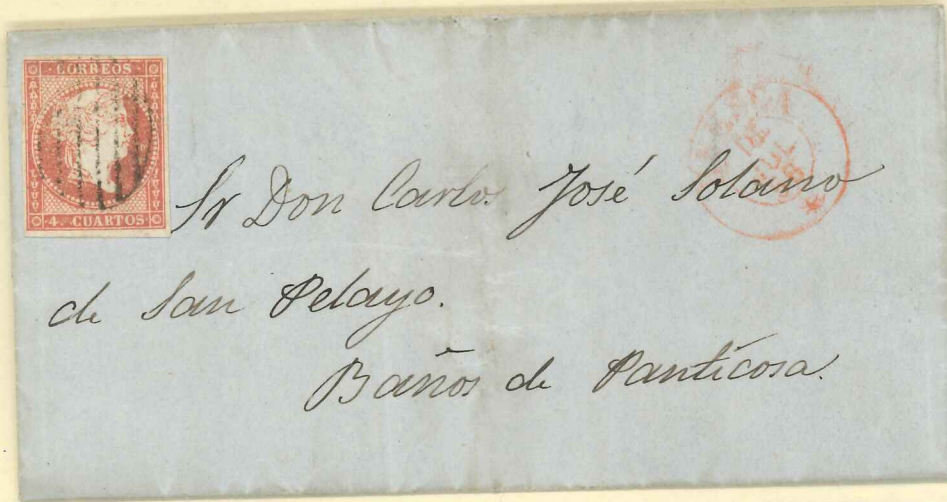 CORREOS
4. CUARTOS
Sr Don Carlos José Solano
de San Pelayo.
Baños de Panticosa.